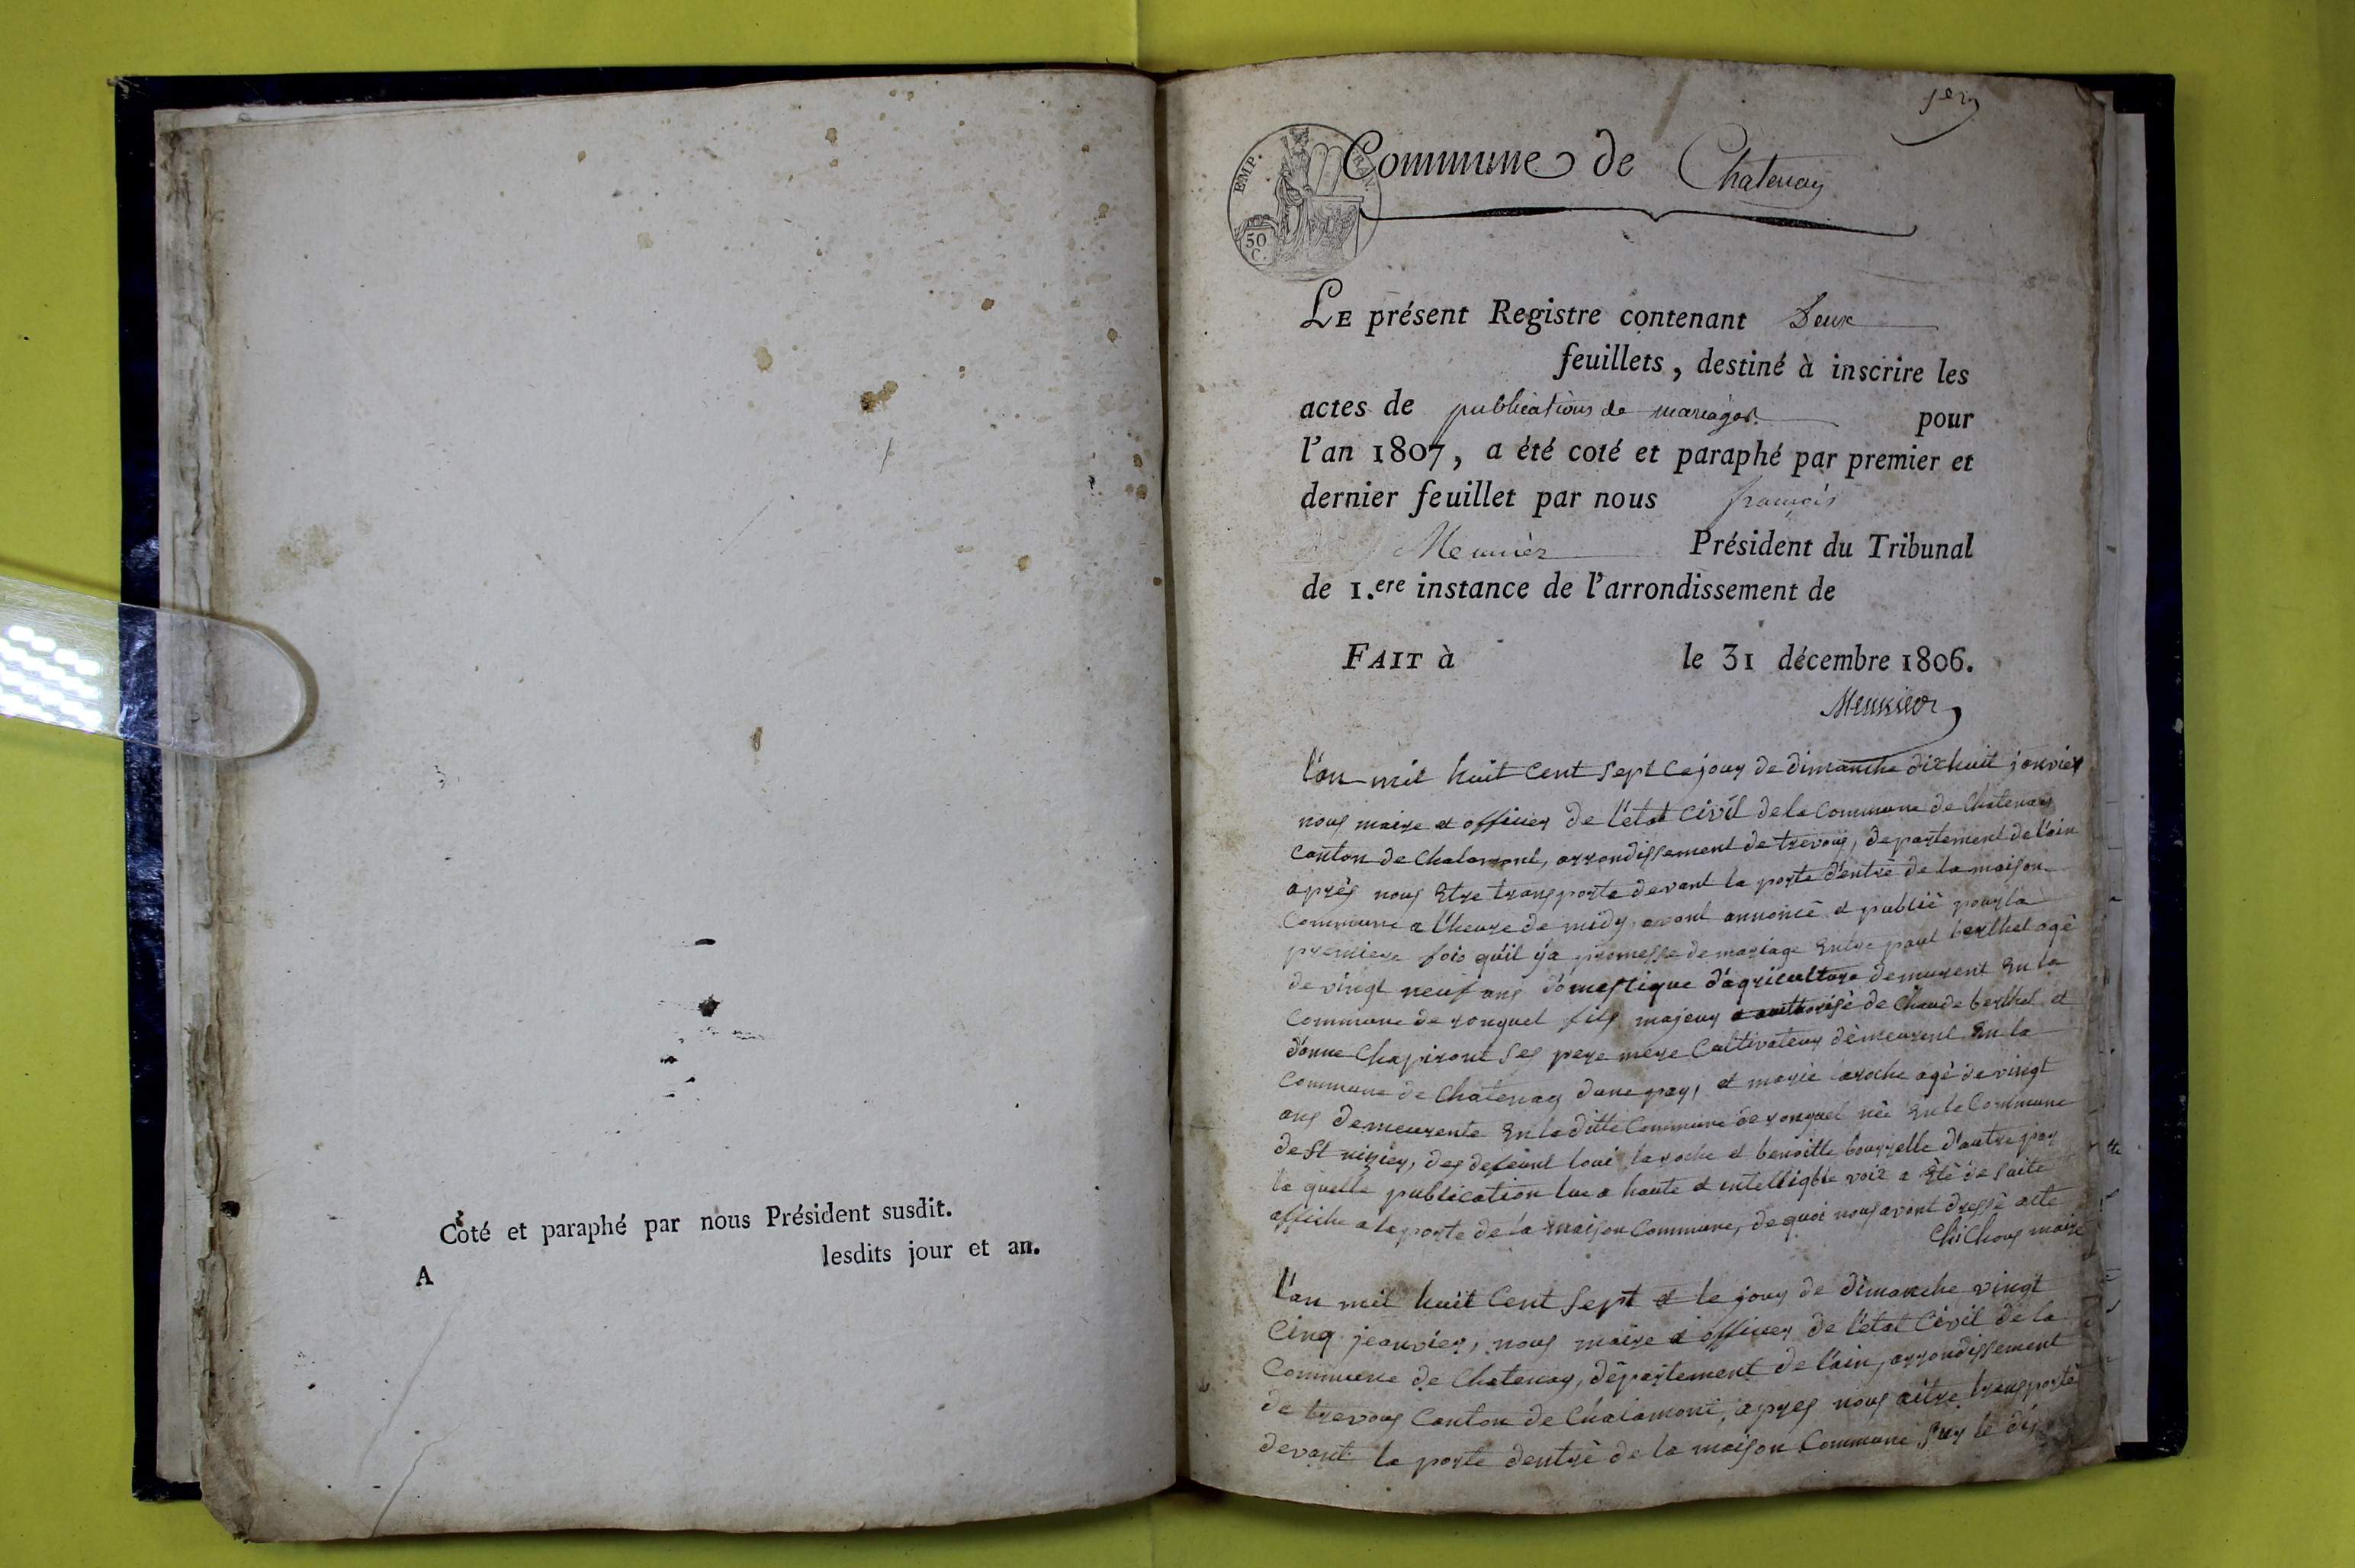 Coté et paraphé par nous Président susdit.
A lesdits jour et an.
1er
EMP. FRAN.
50
C.
Commune de Chatenay
LE présent Registre contenant Deux
feuillets, destiné à inscrire les
actes de publications de mariages pour
l'an 1807, a été coté et paraphé par premier et
dernier feuillet par nous françois
Meunier Président du Tribunal
de 1.ere instance de l'arrondissement de
FAIT à le 31 décembre 1806.
Meunier
l'an mil huit Cent Sept Ce jour de dimanche dixhuit janvier
nous maire et officier de l'état Civil de la Commune de Chatenay
Canton de Chalamont, arrondissement de trevoux, departement de l'ain
après nous Etre transporté devant la porte d'entré de la maison
Commune a l'heure de midy, avont annoncé et publié pour la
premiere fois qu'il y'a promesse de mariage Entre paul berthet agé
de vingt neuf ans domestique d'agriculture demeurent En la
Commune de ronquel fils majeur et authorisé de Claude berthet et
d'anne Chapiront Ses pere mere Cultivateur demeurent En la
Commune de Chatenay dune par, et marie laroche agé de vingt
ans demeurente En la ditte Commune de ronquel née En la Commune
de St nizier, des defeunt loui laroche et benoitte bourrelle d'autre par
la quelle publication lue a haute et intelligible voix a Eté de Suite
affiche a la porte de la maison Commune, de quoi nous avont dressé acte
Chichoux maire
l'an mil huit Cent Sept et le jour de dimanche vingt
Cinq jeanvier, nous maire et officier de l'état Civil de la
Commune de Chatenay, département de l'ain, arrondissement
de trevoux Canton de Chalamont, apres nous aitre transporté
devant la porte dentré de la maison Commune Sur le dis